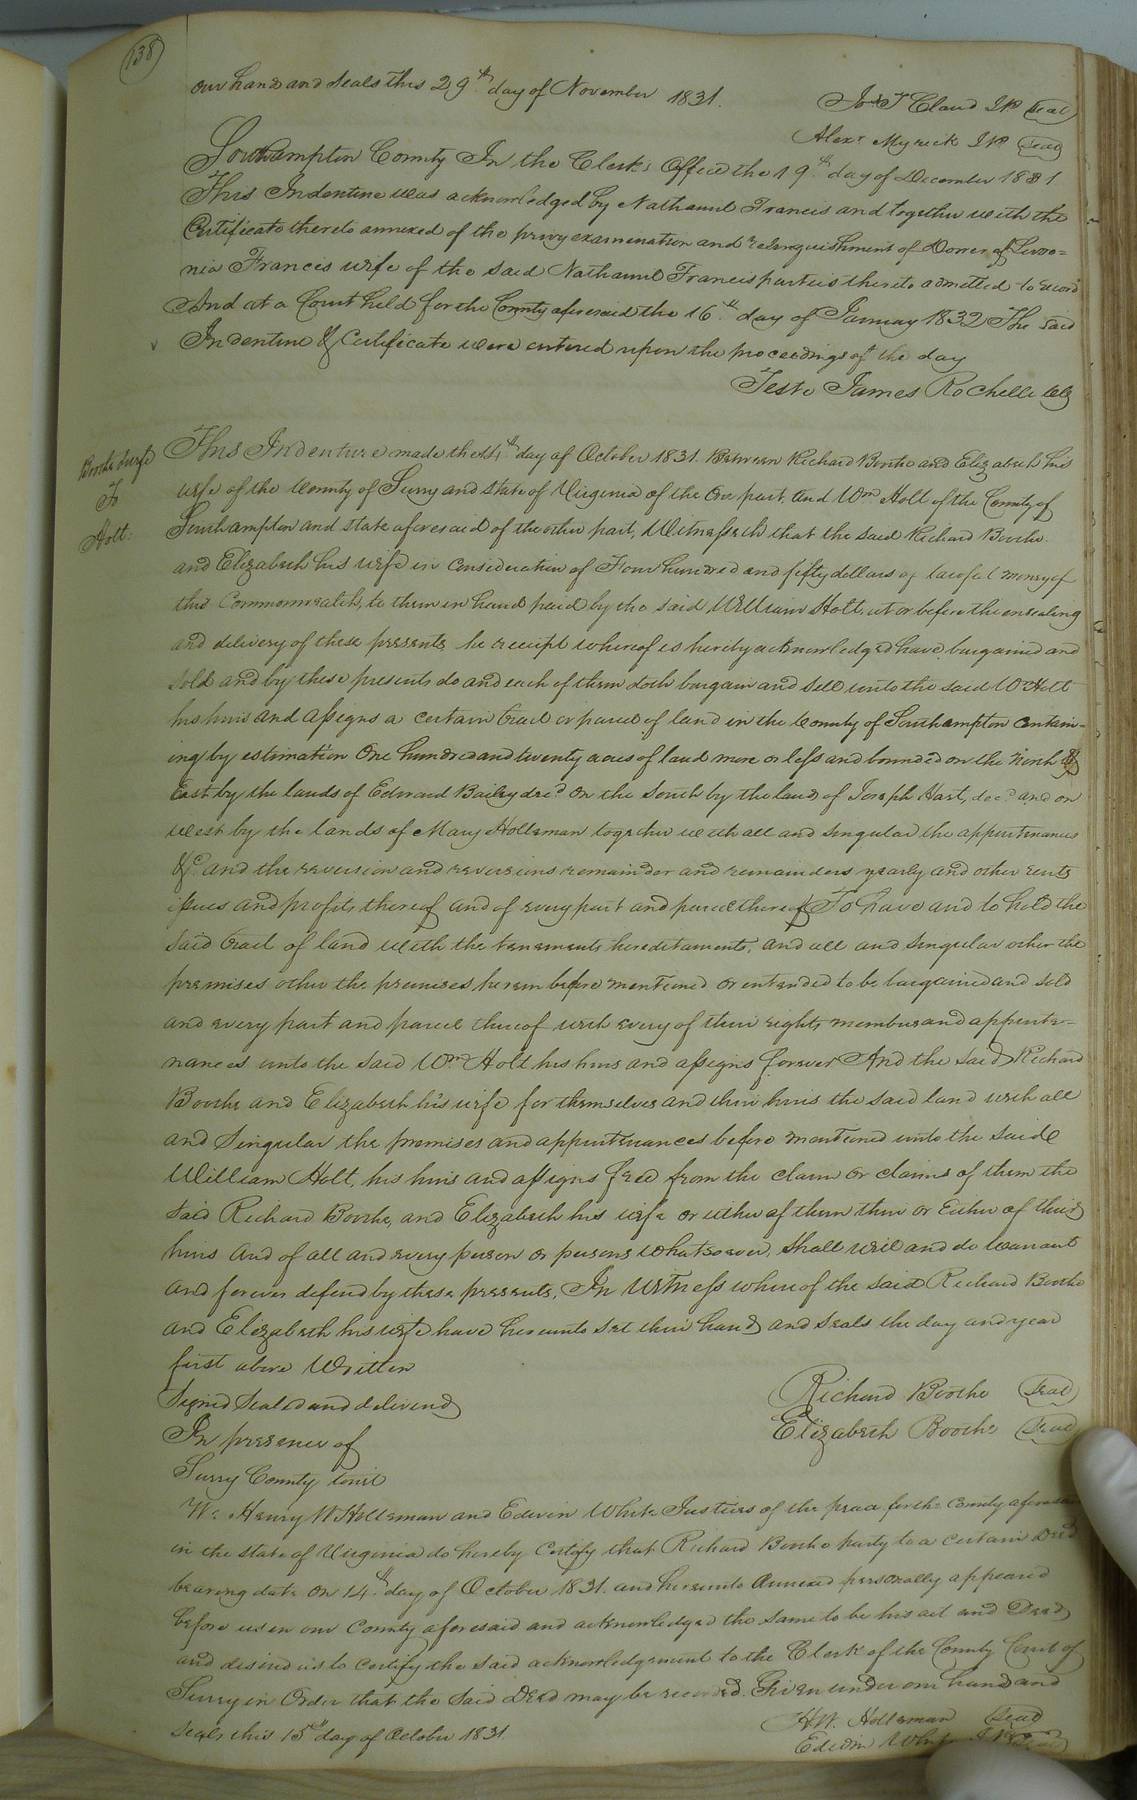 138
our hand and seals this 29th day of November 1831.
Jos T Claud JP Seal
Alexr Myrick JP Seal
Southampton County In the Clerks Office the 19th day of December 1831
This Indenture was acknowledged by Nathaniel Francis and together with the
Certificate thereto annexed of the privy examination and relinquishment of Dower of Lavo=
nia Francis wife of the said Nathaniel Francis parties thereto admitted to record
And at a Court held for the County aforesaid the 16th day of January 1832 The said
Indenture & Certificate were entered upon the proceedings of the day
Teste James Rochelle Clk
Boothe & wife
To
Holt:
This Indenture made the 14th day of October 1831. Between Richard Boothe and Elizabeth his
wife of the County of Surry and state of Virginia of the One part, and Wm Holt of the County of
Southampton and state aforesaid of the other part, Witnesseth that the said Richard Boothe
and Elizabeth his wife in consideration of Four hundred and fifty dollars of lawful money of
this Commonwealth, to them in hand paid by the said William Holt, at or before the ensealing
and delivery of these presents the receipt whereof is hereby acknowledged have bargained and
sold and by these presents do and each of them doth bargain and sell unto the said Wm Holt
his heirs and assigns a certain tract or parcel of land in the County of Southampton contain-
ing by estimation One hundred and twenty acres of land more or less and bounded on the North &
East by the lands of Edward Bailey decd On the South by the land of Joseph Hart, decd and on
West by the lands of Mary Holleman together with all and singular the appurtenances
&c and the reversion and reversions remainder and remainders yearly and other rents
issues and profits thereof and of every part and parcel thereof To have and to hold the
said tract of land with the tenements hereditaments, and all and singular other the
premises other the premises herein before mentioned or intended to be bargained and sold
and every part and parcel thereof with every of their rights members and appurte-
nances unto the said Wm Holt his heirs and assigns forever And the said Richard
Boothe and Elizabeth his wife for themselves and their heirs the said land with all
and Singular the premises and appurtenances before mentioned unto the said
William Holt, his heirs and assigns free from the claim or claims of them the
said Richard Boothe, and Elizabeth his wife or either of them their or Either of their
heirs And of all and every person or persons whatsoever, shall will and do warrant
and forever defend by these presents, In Witness whereof the said Richard Boothe
and Elizabeth his wife have hereunto set their hand and seals the day and year
first above Written
Signed Sealed and delivered
In presence of
Richard Boothe Seal
Elizabeth Boothe Seal
Surry County towit
We Henry W Holleman and Edwin White Justices of the peace for the County aforesaid
in the state of Virginia do hereby Certify that Richard Boothe party to a certain Deed
bearing date on 14th day of October 1831. and hereunto Annexed personally appeared
before us in our County aforesaid and acknowledged the same to be his act and Deed
and desired us to certify the said acknowledgement to the Clerk of the County Court of
Surry in Order that the said Deed may be recorded. Given under our hand and
seals this 15th day of October 1831.
H.W. Holleman Seal
Edwin White